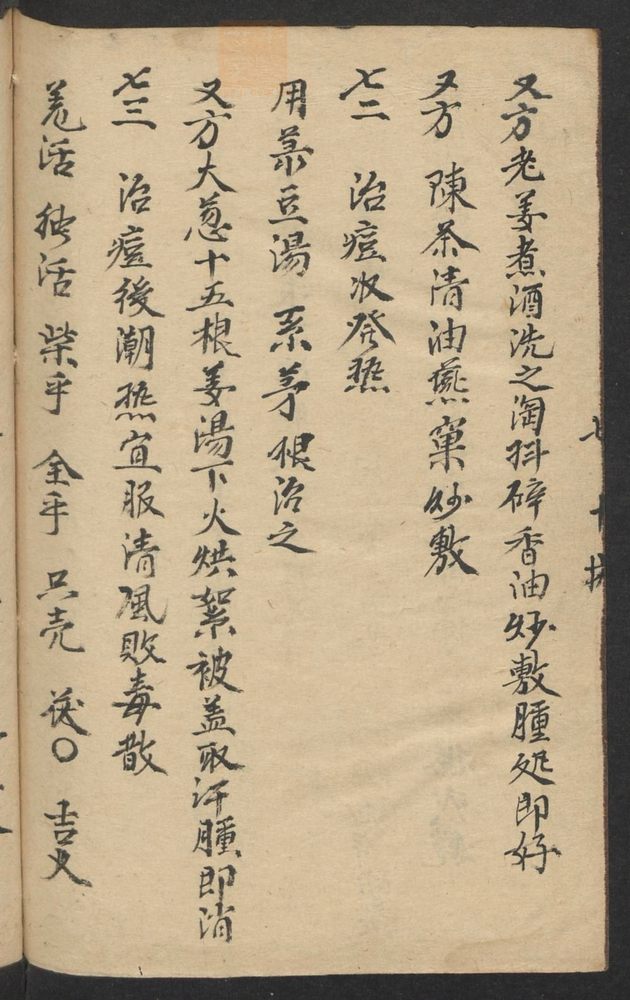 又方老姜煮酒洗之淘抖碎香油炒敷腫処即好
又方 陳茶清油燕窠炒敷
七二 治痘收發热
用菉豆湯 系茅根治之
又方大葱十五根姜湯下火烘絮被盖取汗腫即消
七三 治痘後潮热宜服清風败毒散
羌活 独活 柴乎 全乎 只壳 茯〇 吉又